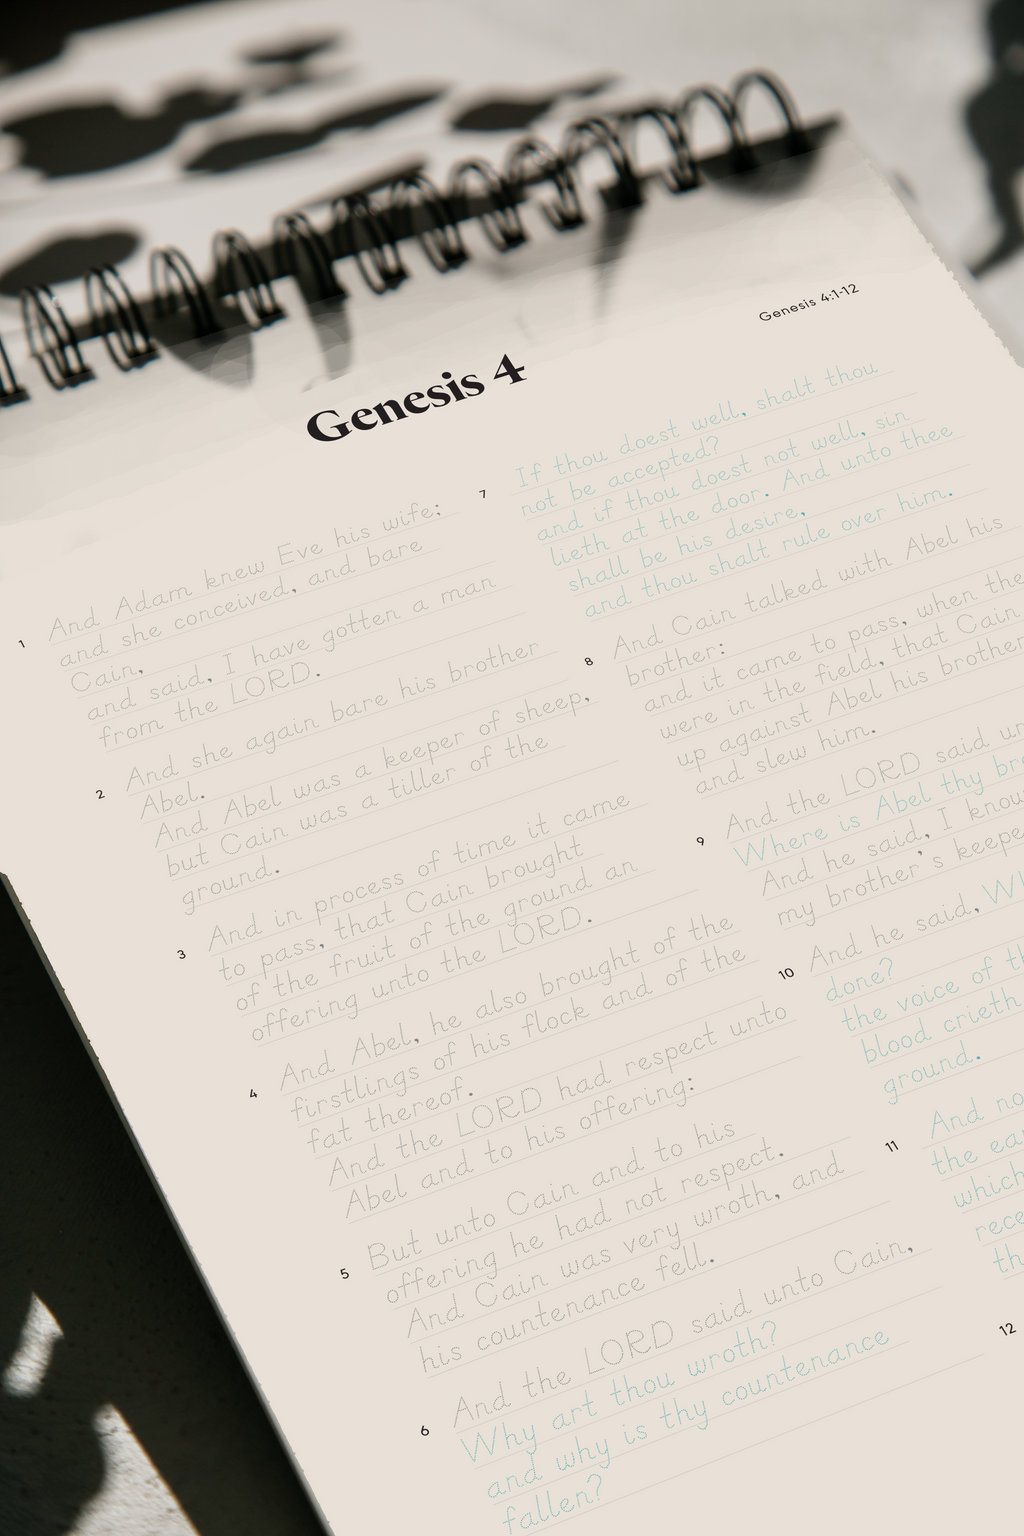 Genesis 4:1-12
Genesis 4
1
And Adam knew Eve his wife:
and she conceived, and bare
Cain,
and said, I have gotten a man
from the LORD.
2
And she again bare his brother
Abel.
And Abel was a keeper of sheep,
but Cain was a tiller of the
ground.
3
And in process of time it came
to pass, that Cain brought
of the fruit of the ground an
offering unto the LORD.
4
And Abel, he also brought of the
firstlings of his flock and of the
fat thereof.
And the LORD had respect unto
Abel and to his offering:
5
But unto Cain and to his
offering he had not respect.
And Cain was very wroth, and
his countenance fell.
6
And the LORD said unto Cain,
Why art thou wroth?
and why is thy countenance
fallen?
7
If thou doest well, shalt thou
not be accepted?
and if thou doest not well, sin
lieth at the door. And unto thee
shall be his desire,
and thou shalt rule over him.
8
And Cain talked with Abel his
brother:
and it came to pass, when the
were in the field, that Cain
up against Abel his brother
and slew him.
9
And the LORD said un
Where is Abel thy bro
And he said, I know
my brother's keepe
10
And he said, Wh
done?
the voice of th
blood crieth
ground.
11
And no
the ear
which
rece
th
12